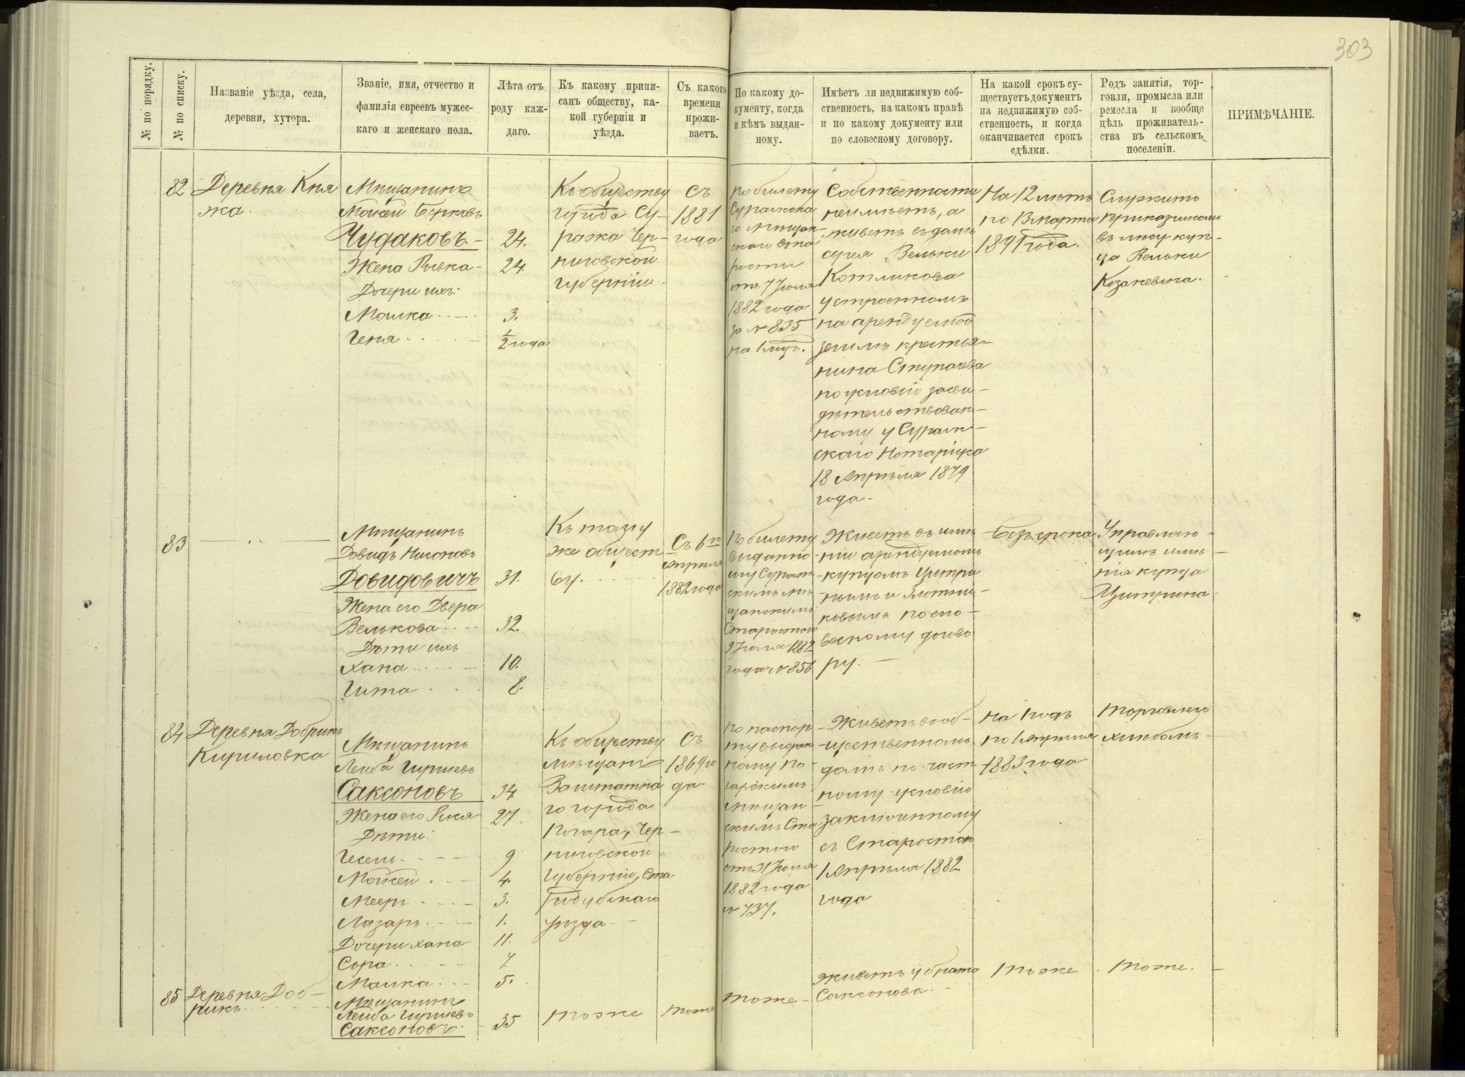 303
№ по порядку.
№ по списку.
Названіе уѣзда, села,
деревни, хутора.
Званіе, имя, отчество и
фамилія евреевъ мужес-
каго и женскаго пола.
Лѣта отъ
роду каж-
даго.
Къ какому припи-
санъ обществу, ка-
кой губерніи и
уѣзда.
Съ какого
времени
прожи-
ваетъ.
По какому до-
кументу, когда
и кѣмъ выдан-
ному.
Имѣетъ ли недвижимую соб-
ственность, на какомъ правѣ
и по какому документу или
по словесному договору.
На какой срокъ су-
ществуетъ документъ
на недвижимую соб-
ственность, и когда
оканчивается срокъ
сдѣлки.
Родъ занятія, тор-
говли, промысла или
ремесла и вообще
цѣль проживатель-
ства въ сельскомъ
поселеніи.
ПРИМѢЧАНІЕ.
82
Деревня Кня
жа.
Мѣщанинъ
Мовсей Берковъ
Чудаковъ-
24.
Жена Рывка-
24
Дочери ихъ:
Малка
3.
Геня
1/2 года
Къ обществу
города Су-
ража Чер-
ниговской
губерніи.
Съ
1881
года
По билету
Суражска
го мѣщан-
скаго ста
росты
отъ 7 Іюля
1882 года
за № 835
Собственности
неимѣетъ, а
живетъ въ домѣ
Вельки
Котликова
устроенномъ
на арендуемой
землѣ крестья-
нина Ступаева
по условію засви-
дѣтельствован-
ному у Сураж-
скаго Нотаріуса
18 Апрѣля 1879
года.
На 12 лѣтъ
по 13 марта
1891 года.
Служитъ
прикащикомъ
въ лѣсу куп-
ца Вельки
Козакевича.
83
Мѣщанинъ
Довидъ
Довидовичъ
31.
Жена его Двера
Велькова
32
Дѣти ихъ
Хана
10.
Гита
8.
Къ тому
же общест-
ву.
Съ 6го
Апрѣля
1882 года
По билету
выданно
му Сураж
скимъ мѣ
щанскимъ
Старостою
9 Іюля 1882
года № 856
Живетъ въ имѣ
ніи арендуемомъ
купцомъ Цитри
нымъ и
по сло-
весному догово
ру.
Безъ срока
Управляю-
щимъ имѣ-
ніа купца
Цитрина
84
Деревня Добрикъ
Кириловка
Мѣщанинъ
Лейба Гиршевъ
Саксоновъ
34
Жена его Рися
27.
Дѣти:
Гесель
9
Мовсей
4.
Мееръ
3.
Лазарь
1.
Дочери Хана
11.
Сора
7
Малка
5.
Къ обществу
мѣщанъ
Заштатна
го города
Погара, Чер-
ниговской
Губерніи, Ста
родубскаго
уѣзда.
Съ
1869 го
да
По паспор
ту выдан
ному По-
гарскимъ
мѣщан-
скимъ Ста
ростою
отъ 31 Іюля
1882 года
№ 737.
Живетъ въ об-
щественномъ
домѣ по част
ному условію
заключенному
съ Старостою
1 Апрѣля 1882
года
На 1 годъ
по 1 Апрѣля
1883 года
Торговлею
хлѣбомъ
85
Деревня Доб-
рикъ
Мѣщанинъ
Лейба Гиршевъ
Саксоновъ.
35
Тоже
Тоже
Тоже
Живетъ у брата
Саксонова.
Тоже
Тоже.